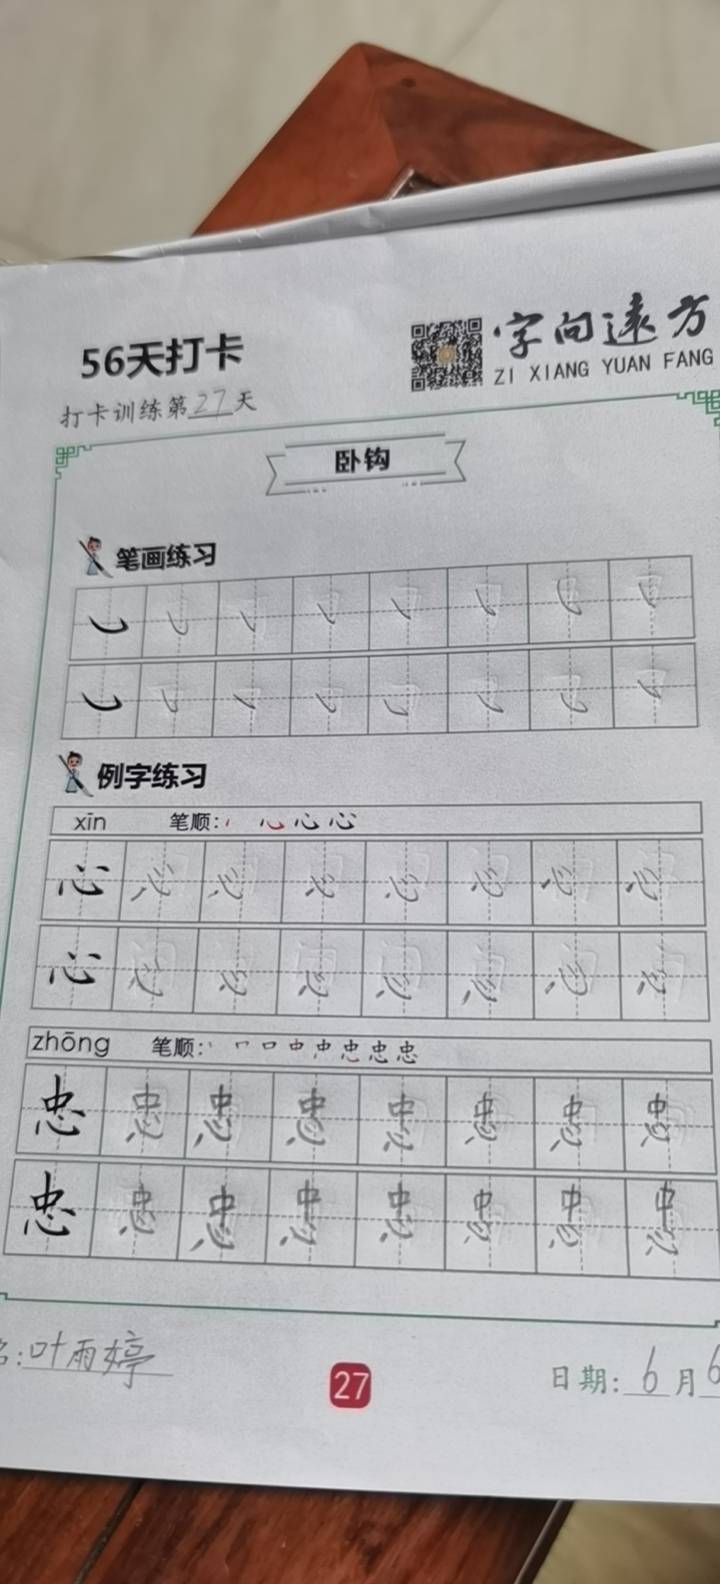 56天打卡
字向远方
ZI XIANG YUAN FANG
打卡训练第27天
卧钩
笔画练习
例字练习
xīn 笔顺: 心 心 心
心 心 心 心 心 心 心 心
心 心 心 心 心 心 心 心
zhōng 笔顺: 丶 口 中 忠 忠 忠
忠 忠 忠 忠 忠 忠 忠 忠
忠 忠 忠 忠 忠 忠 忠 忠
名:叶雨婷
27
日期: 6月6